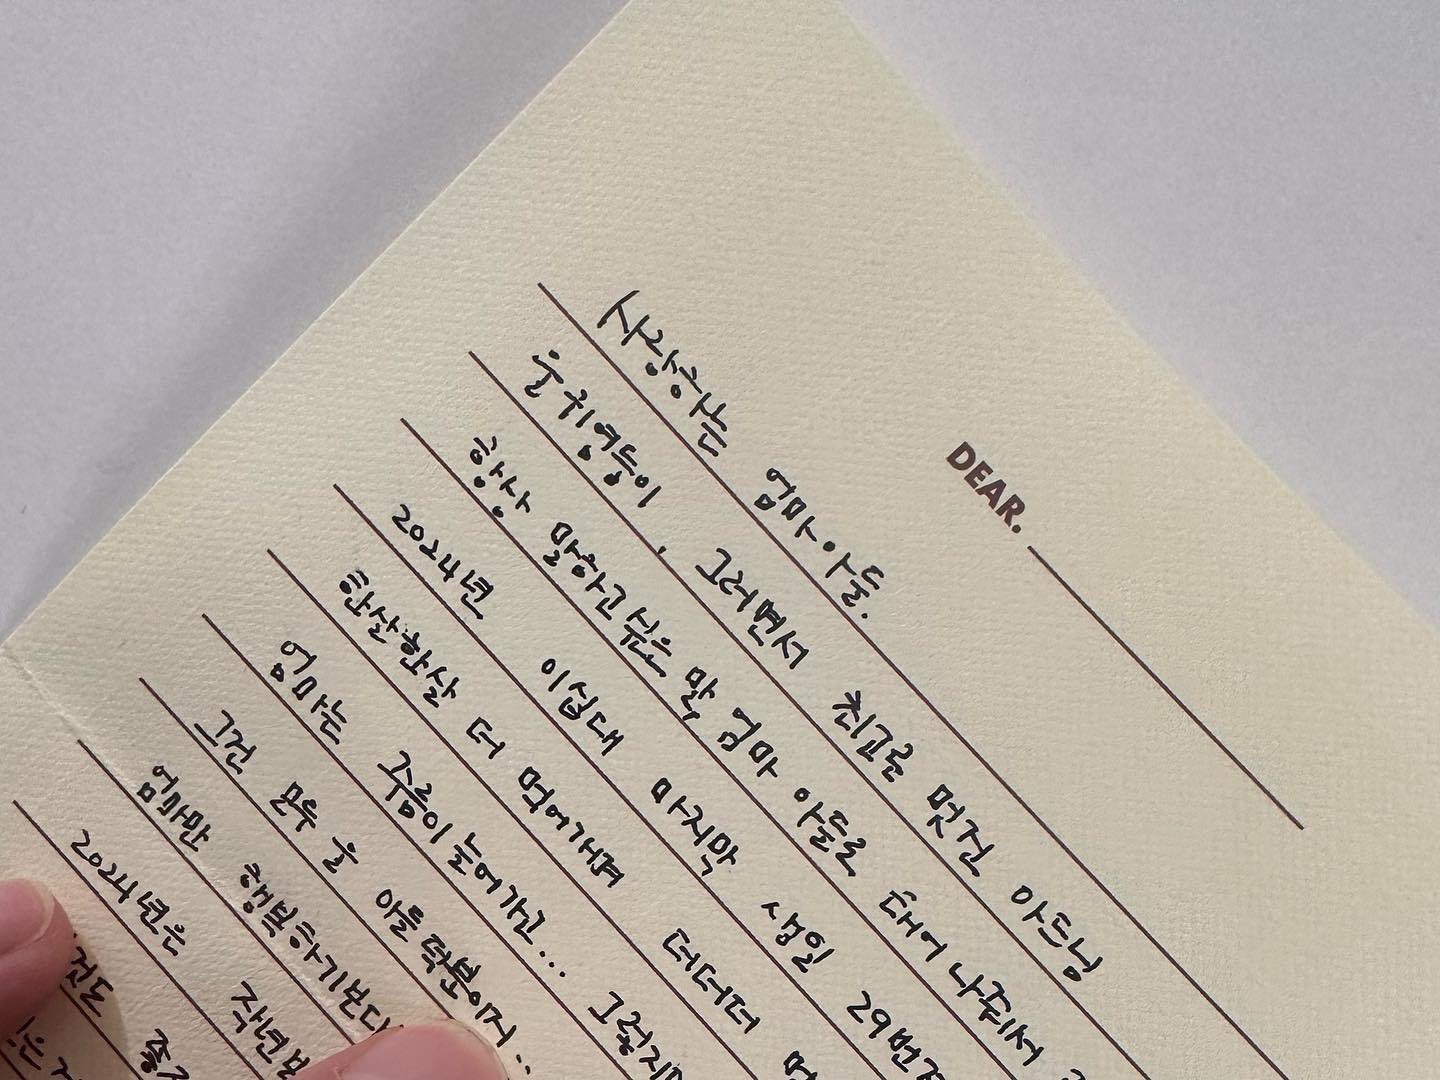 DEAR.
사랑하는 엄마아들.
운휘영둥이, 그러면서 최고로 멋진 아드님
항상 말하고싶은 말, 엄마 아들로 태어나줘서
2024년 이십대 마지막 생일 29번
한살한살 더 먹어가며 더더더
엄마는 주름이 늘어가고... 그렇지만
그건 모두 울 아들 덕분이지..
엄마만 행복하기보다
2024년은 작년보